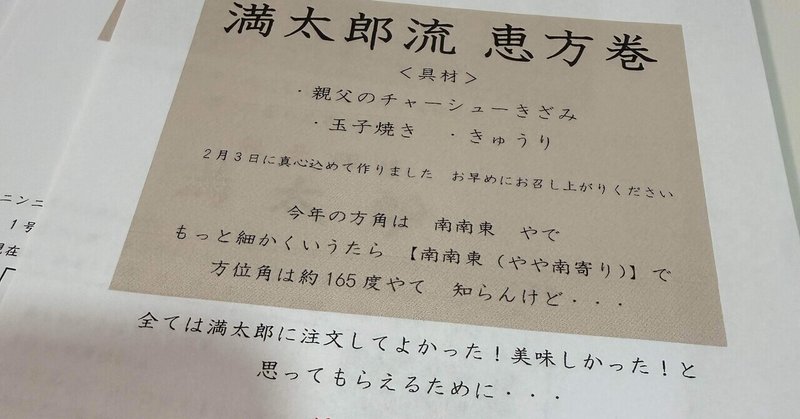 満太郎流 恵方巻
＜具材＞
・親父のチャーシューきざみ
・玉子焼き ・きゅうり
2月3日に真心込めて作りました お早めにお召し上がりください
今年の方角は 南南東 やで
もっと細かくいうたら 【南南東（やや南寄り）】で
方位角は約165度やて 知らんけど・・・
全ては満太郎に注文してよかった！美味しかった！と
思ってもらえるために・・・
ニンニ
1号
現在